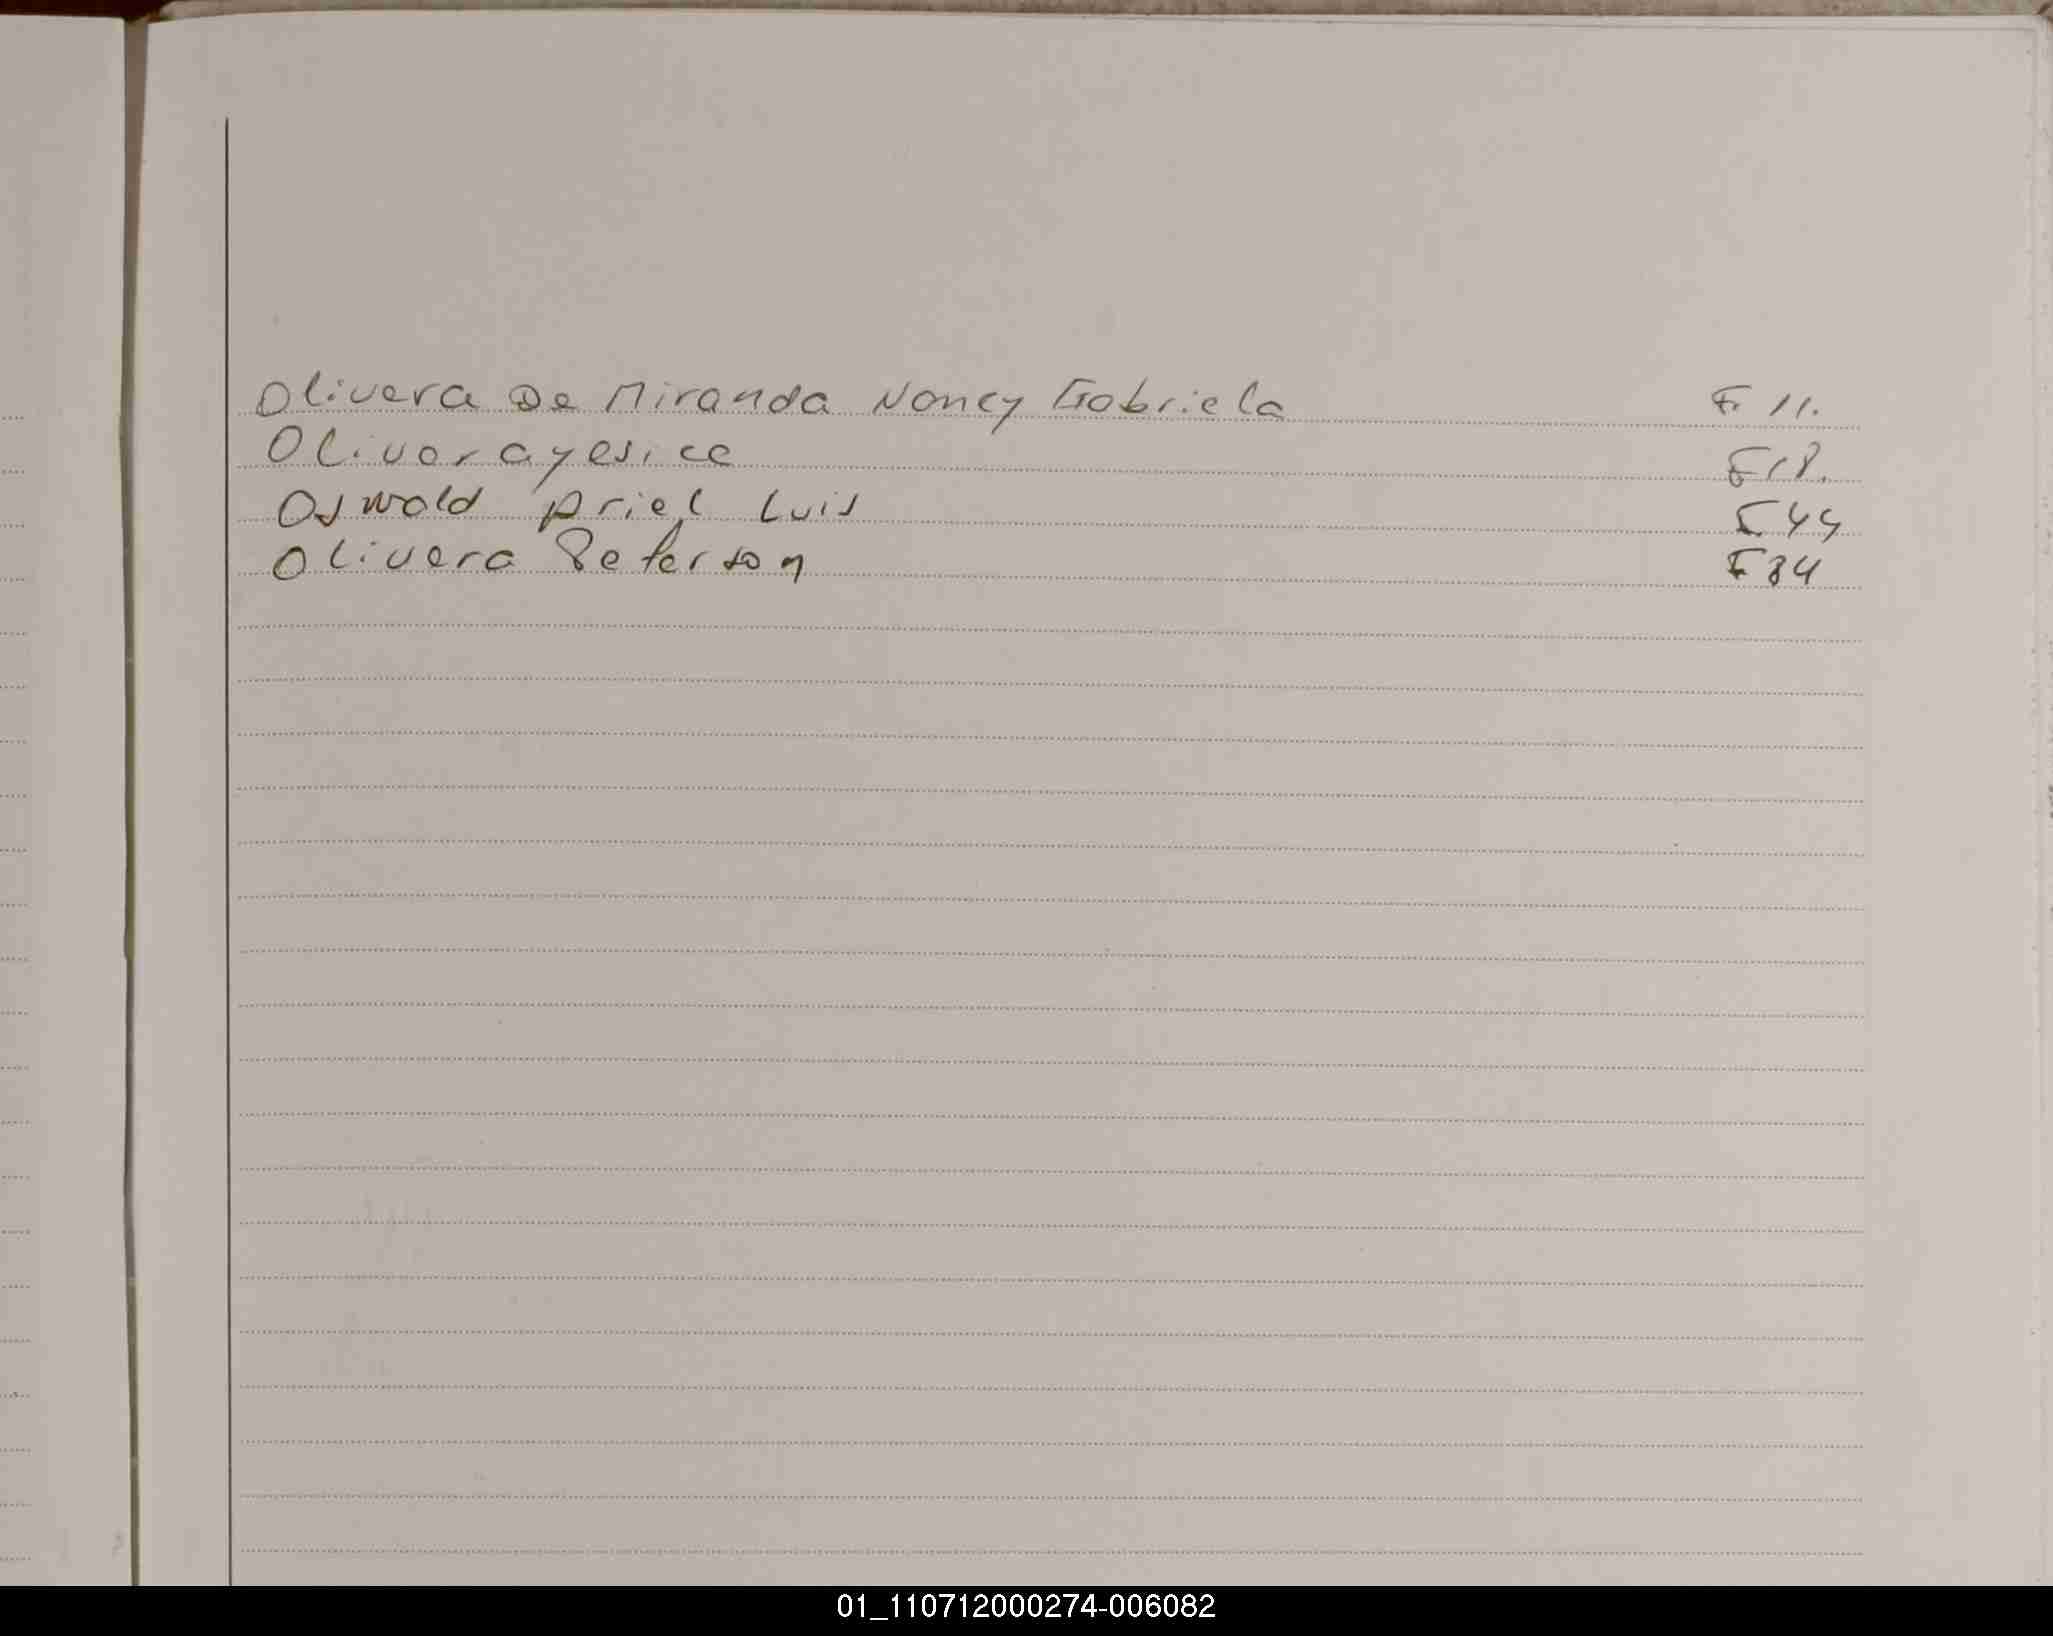 Olivera De Miranda Nancy Gabriela F. 11.
Olivera yesica F 18.
Oswald Ariel Luis F. 44
Olivera Peterson F 34
01_110712000274-006082